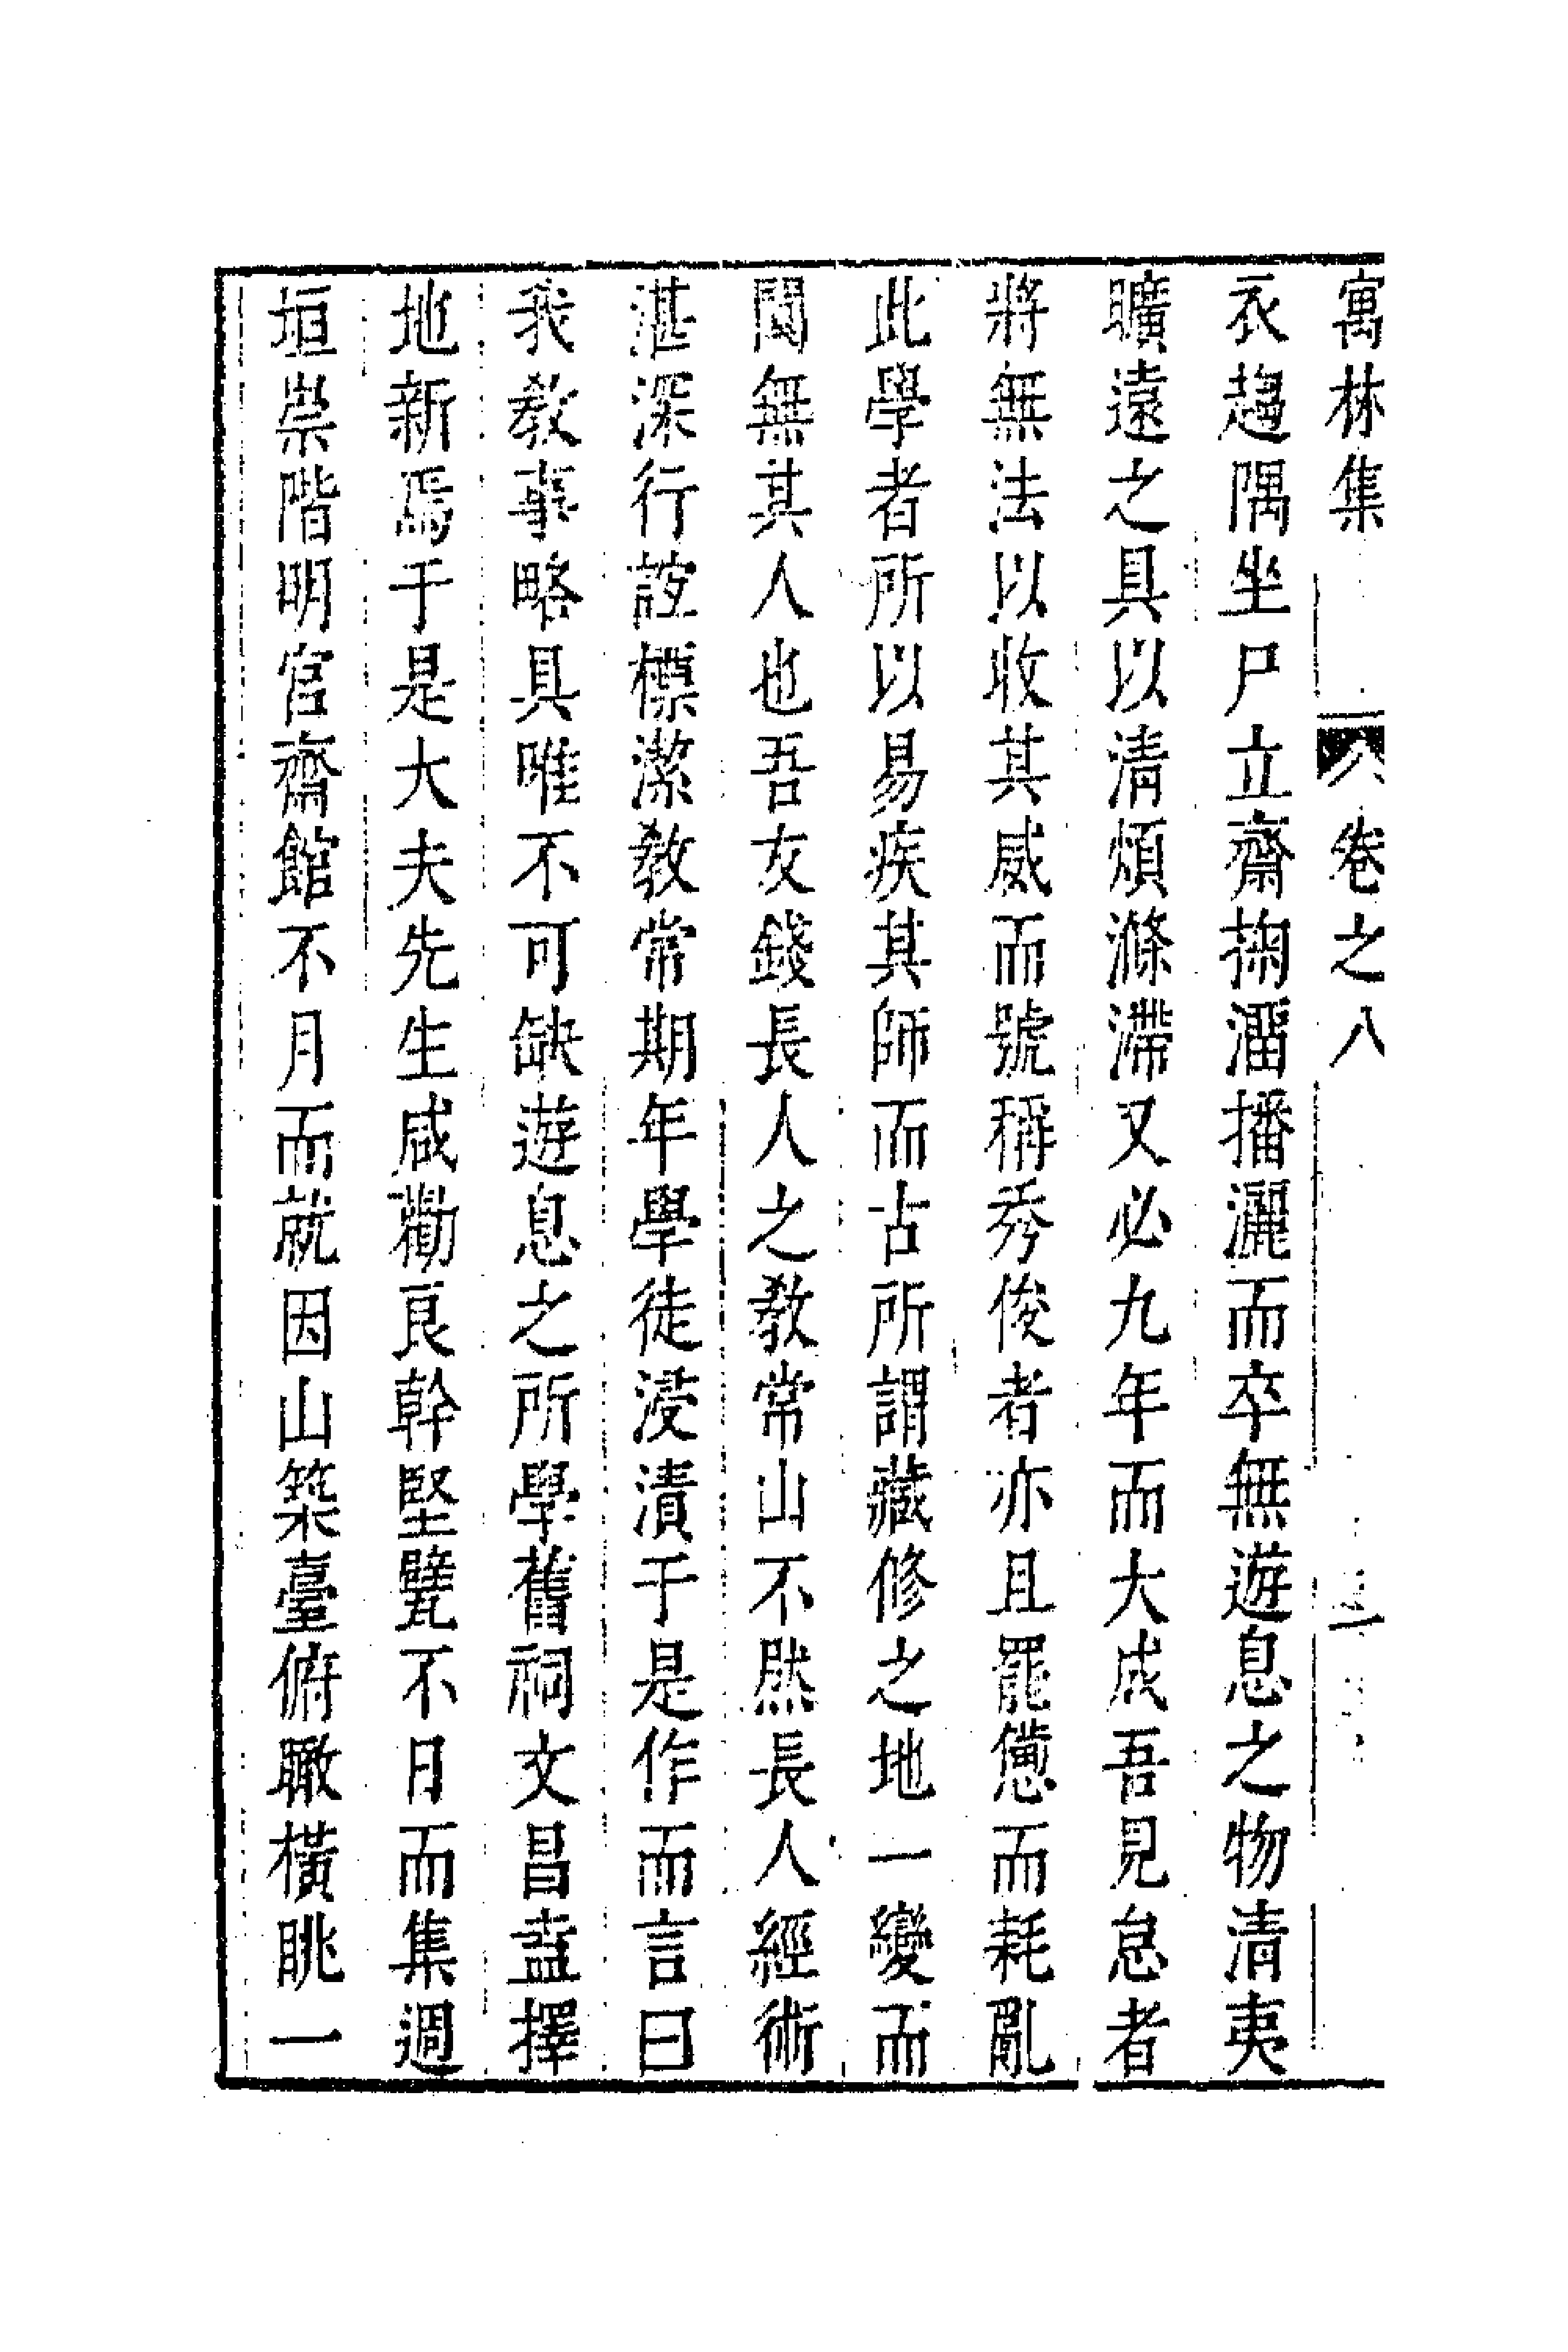 寓林集 卷之八 二
衣趨隅坐尸立齋掬㴙播灑而卒無遊息之物清夷
曠遠之具以清煩滌滯又必九年而大成吾見怠者
將無法以收其威而號稱秀俊者亦且罷憊而耗亂
此學者所以易疾其師而古所謂藏修之地一變而
閴無其人也吾友錢長人之教常山不然長人經術
湛深行誼標潔教常期年學徒浸漬于是作而言曰
我教事略具唯不可缺遊息之所學舊祠文昌盍擇
地新焉于是大夫先生咸勸良幹堅甓不日而集週
垣崇階明宫齋館不月而就因山築臺俯瞰橫眺一